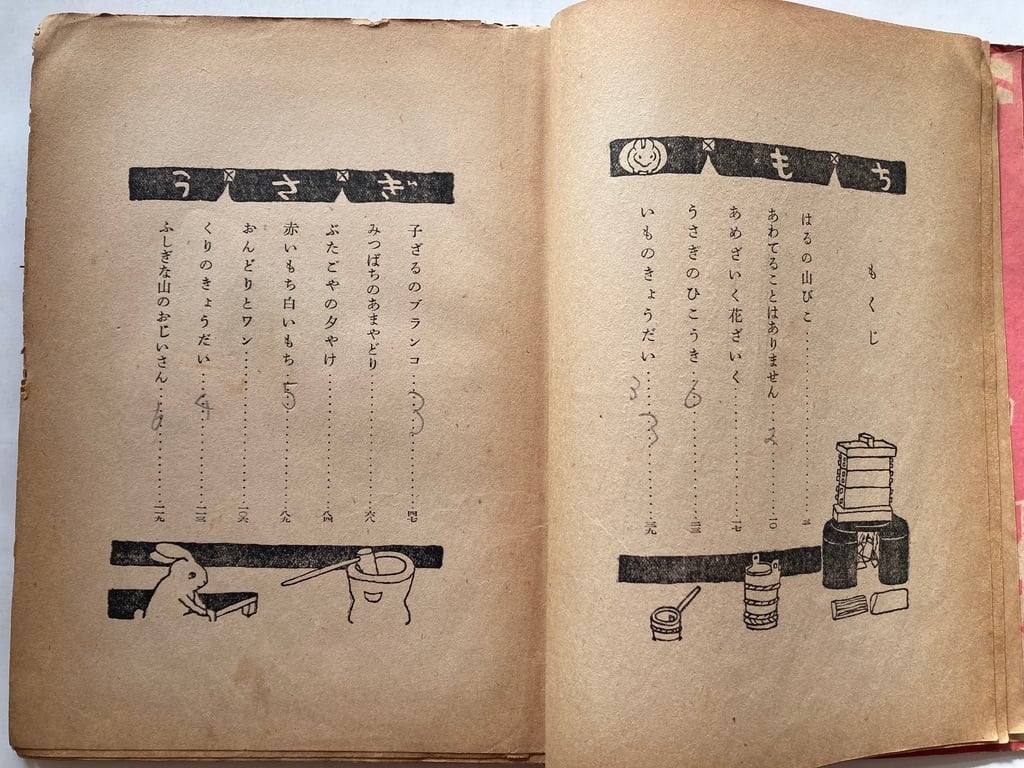 うさぎ
もち
もくじ
はるの山びこ……三
あわてることはありません……一〇
あめざいく花ざいく……一七
うさぎのひこうき……
いものきょうだい……
2
6
3
3
子ざるのブランコ……四七
みつばちのあまやどり……六八
ぶたごやの夕やけ……八四
赤いもち白いもち……八九
おんどりとワン……一〇六
くりのきょうだい……一一三
ふしぎな山のおじいさん……一一九
3
5
4